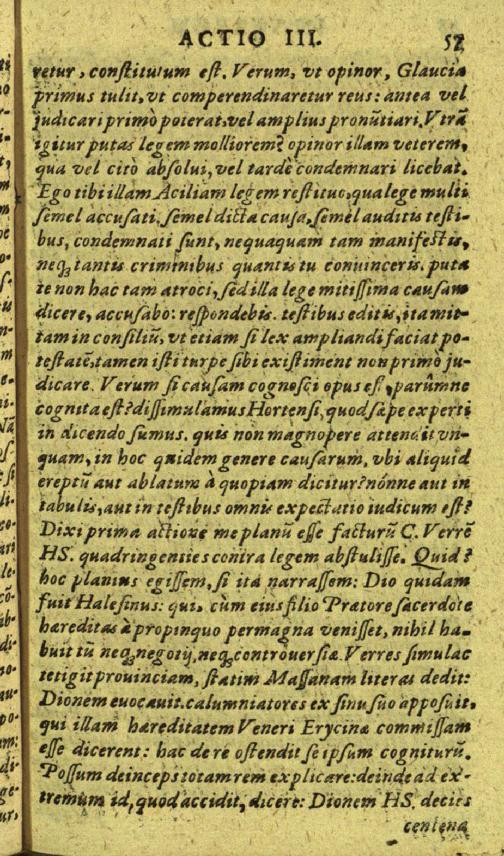 ACTIO III. 57
retur, constitutum est. Verum, vt opinor, Glaucia
primus tulit, vt comperendinaretur reus: antea vel
judicari primò poterat, vel amplius pronũtiari. Vtrã
igitur putas legem molliorem? opinor illam veterem,
qua vel citò absolui, vel tardè condemnari licebat.
Ego tibi illam Aciliam legem restituo, qua lege multi
semel accusati, semel dicta causa, semel auditis testi-
bus, condemnati sunt, nequaquam tam manifestis,
neq; tantis criminibus quantis tu conuinceris. puta
te non hac tam atroci, sed illa lege mitissima causam
dicere, accusabo: respondebis. testibus editis, ita mit-
tam in consiliũ, vt etiam si lex ampliandi faciat po-
testatẽ, tamen isti turpe sibi existiment non primò ju-
dicare. Verum si causam cognosci opus est, parúmne
cognita est? dissimulamus Hortensi, quod sæpe experti
in dicendo sumus. quis non magnopere attendit vn-
quam, in hoc quidem genere causarum, vbi aliquid
ereptũ aut ablatum à quopiam dicitur? nónne aut in
tabulis, aut in testibus omnis expectatio iudicum est?
Dixi prima actione me planũ esse facturũ C. Verrẽ
HS. quadringenties contra legem abstulisse. Quid?
hoc planius egissem, si ita narrassem: Dio quidam
fuit Halesinus: qui, cùm eius filio Prætore sacerdote
hæreditas à propinquo permagna venisset, nihil ha-
buit tũ neq; negotij, neq; controuersiæ. Verres simulac
tetigit prouinciam, statim Massanam literas dedit:
Dionem euocauit. calumniatores ex sinu suo apposuit,
qui illam hæreditatem Veneri Erycinæ commissam
esse dicerent: hac de re ostendit se ipsum cogniturũ.
Possum deinceps totam rem explicare: deinde ad ex-
tremum id, quod accidit, dicere: Dionem HS. decies
centena